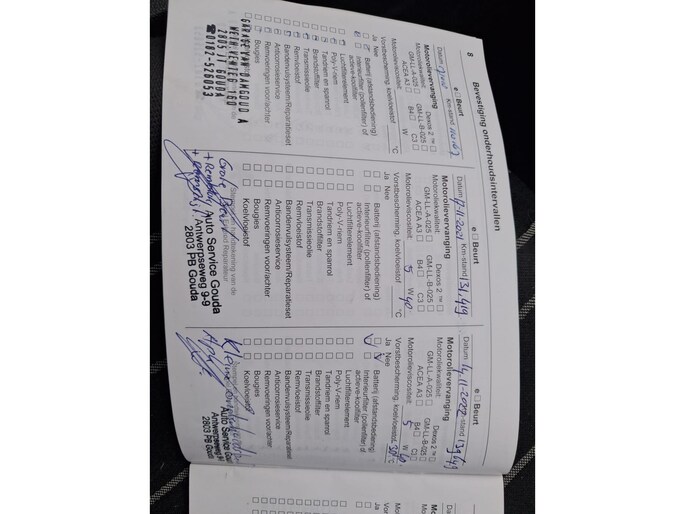 8
Bevestiging onderhoudsintervallen
e □ Beurt
Datum
Km-stand
Motorolievervanging
Motoroliekwaliteit: Dexos 2 ™ □
GM-LL-A-025 □ GM-LL-B-025 □
ACEA A3 □ B4 □ C3 □
Motorolieviscositeit: W
Vorstbescherming, koelvloeistof °C
Ja Nee
□ □ Batterij (afstandsbediening)
□ □ Interieurfilter (pollenfilter) of
actieve-koolfilter
□ □ Luchtfilterelement
□ □ Poly-V-riem
□ □ Tandriem en spanrol
□ □ Brandstoffilter
□ □ Transmissieolie
□ □ Remvloeistof
□ □ Bandenvulsysteem/Reparatieset
□ □ Anticorrosieservice
□ □ Remvoeringen voor/achter
□ □ Bougies
GARAGE VAN DAMGOUD A
2805 JT GOUDA
☎0182-526053
e □ Beurt
Datum 17-11-2021 Km-stand 131.419
Motorolievervanging
Motoroliekwaliteit: Dexos 2 ™ □
GM-LL-A-025 □ GM-LL-B-025 □
ACEA A3 □ B4 □ C3 □
Motorolieviscositeit: 5 W 40
Vorstbescherming, koelvloeistof °C
Ja Nee
□ □ Batterij (afstandsbediening)
□ □ Interieurfilter (pollenfilter) of
actieve-koolfilter
□ □ Luchtfilterelement
□ □ Poly-V-riem
□ □ Tandriem en spanrol
□ □ Brandstoffilter
□ □ Transmissieolie
□ □ Remvloeistof
□ □ Bandenvulsysteem/Reparatieset
□ □ Anticorrosieservice
□ □ Remvoeringen voor/achter
□ □ Bougies
□ □ Koelvloeistof
Grote Beurt
Auto Service Gouda
Antwerpseweg 9-9
2803 PB Gouda
e □ Beurt
Datum 14-11-2022 -stand
Motorolievervanging
Motoroliekwaliteit: Dexos 2 ™ □
GM-LL-A-025 □ GM-LL-B-025 □
ACEA A3 □ B4 □ C3 □
Motorolieviscositeit: 5 W 40
Vorstbescherming, koelvloeistof
Ja Nee
Batterij (afstandsbediening)
Interieurfilter (pollenfilter) of
actieve-koolfilter
□ □ Luchtfilterelement
□ □ Poly-V-riem
□ □ Tandriem en spanrol
□ □ Brandstoffilter
□ □ Transmissieolie
□ □ Remvloeistof
□ □ Bandenvulsysteem/Reparatieset
□ □ Anticorrosieservice
□ □ Remvoeringen voor/achter
□ □ Bougies
□ □ Koelvloeistof
Kleine
Auto Service
Antwerpseweg
2803 PB Gouda